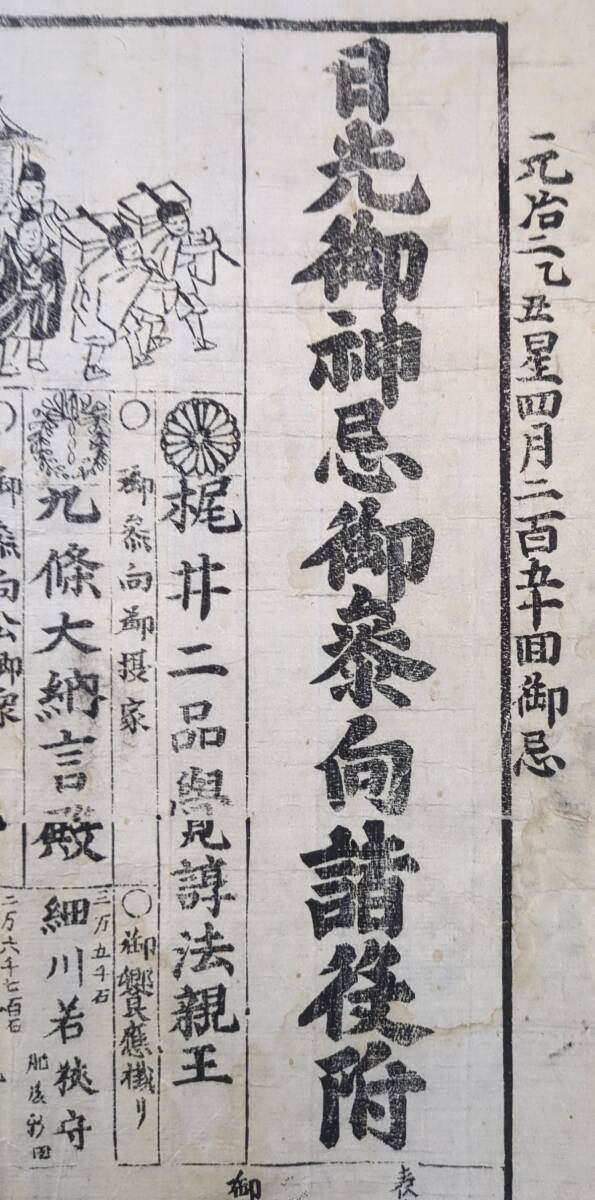 元治二乙丑星四月二百五十回御忌
日光御神忌御參向諸役附
梶井二品覺諄法親王
〇御參向御摂家
九條大納言殿
〇御饗應掛り
二万五千石
細川若狹守
肥後新田
〇御參向公卿衆
二万六千七百石
表
御